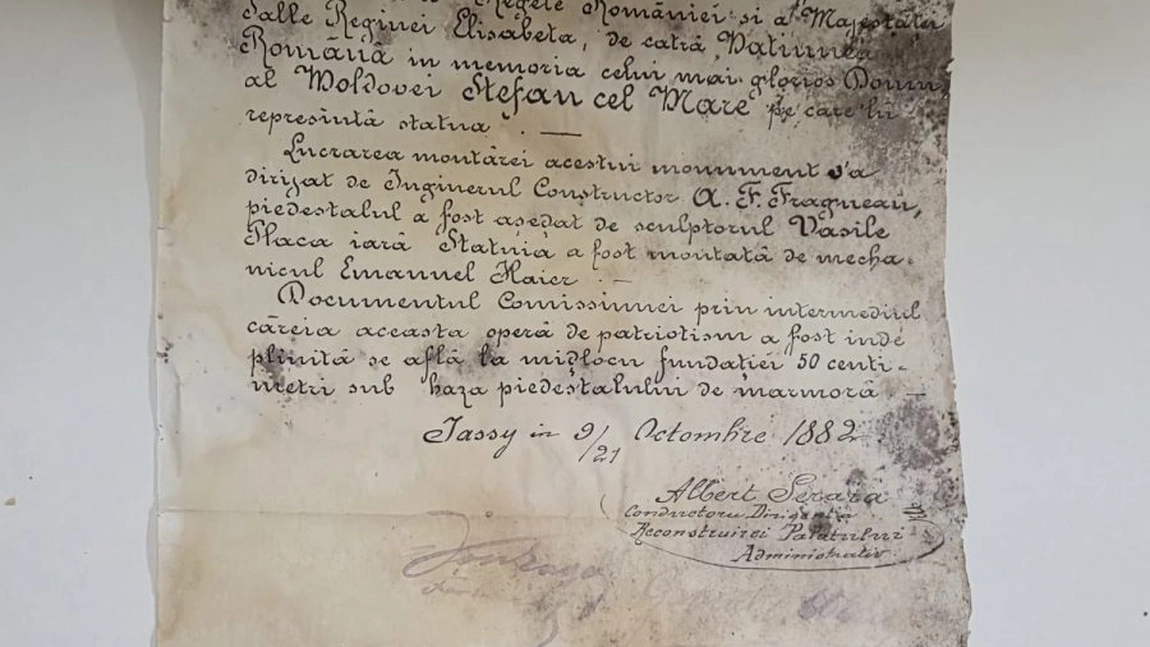 Regele României si a Majestăței
Salle Reginei Elisabeta, de catră Natiunea
Română in memoria celui mai glorios Domn
al Moldovei Stefan cel Mare pe care lu
represintă statua . —
Lucrarea montărei acestui monument s'a
dirijat de Inginerul Constructor A. F. Fragneau,
piedestalul a fost aședat de sculptorul Vasile
Placa iară Statuia a fost montată de mecha-
nicul Emanuel Haier . —
Documentul Comissiunei prin intermediul
căreia aceasta operă de patriotism a fost inde
plinită se află la midlocu fundatiei 50 centi-
metri sub baza piedestalului de marmoră . —
Jassy in 9/21 Octombre 1882
Albert
Conductoru Dirigente
Reconstruirei Palatului
Administrativ